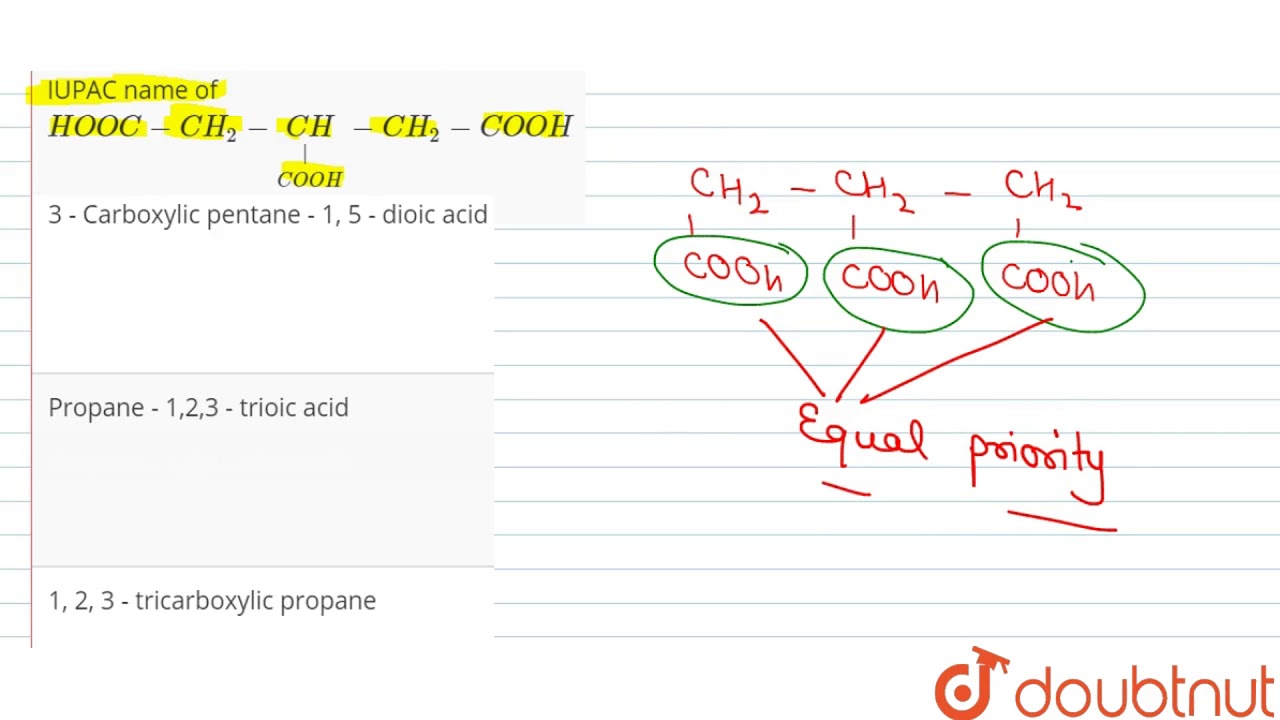 IUPAC name of
HOOC − CH₂ − CH − CH₂ − COOH
|
COOH
3 - Carboxylic pentane - 1, 5 - dioic acid
Propane - 1,2,3 - trioic acid
1, 2, 3 - tricarboxylic propane
CH₂ − CH₂ − CH₂
| | |
COOH COOH COOH
Equal priority
doubtnut